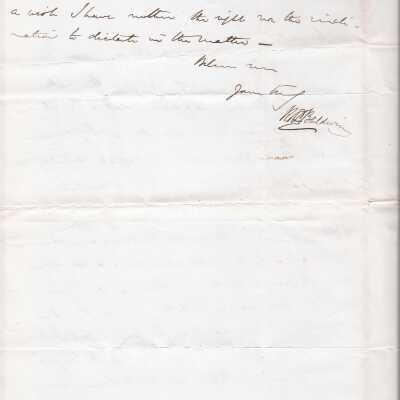 a wish I have neither the right nor the incli-
nation to dictate in the matter —
Believe me
Yours truly
Baldwin